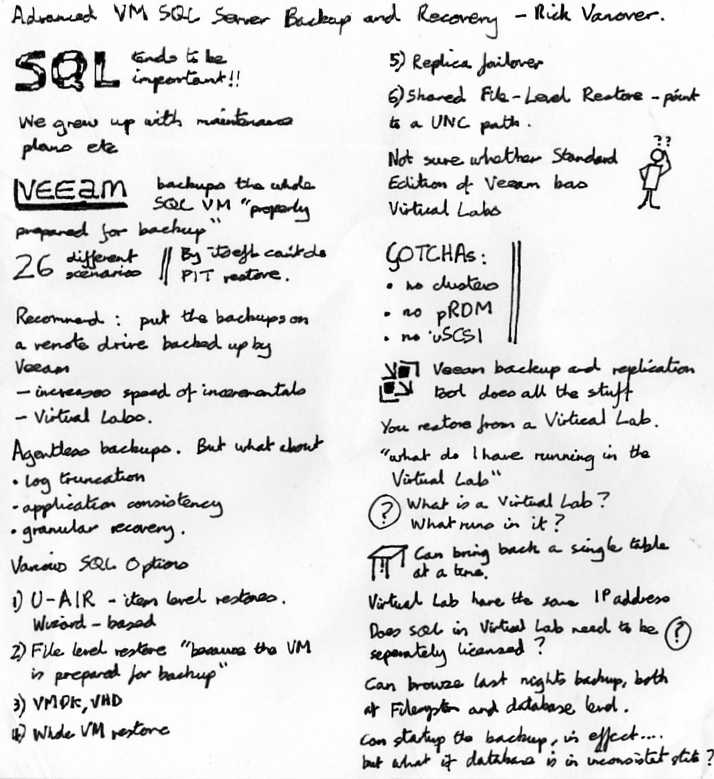 Advanced VM SQL Server Backup and Recovery - Rick Vanover.
SQL tends to be
important!!
We grew up with maintenance
plans etc
VEEAM backups the whole
SQL VM "properly
prepared for backup"
26 different
scenarios
By itself can't do
PIT restore.
Recommend : put the backups on
a remote drive backed up by
Veeam
- increases speed of incrementals
- Virtual Labs.
Agentless backups. But what about
• log truncation
• application consistency
• granular recovery.
Various SQL Options
1) U-AIR - item level restores.
Wizard-based
2) File level restore "because the VM
is prepared for backup"
3) VMDK, VHD
4) Whole VM restore
5) Replica failover
6) Shared File-Level Restore - point
to a UNC path.
??
Not sure whether Standard
Edition of Veeam has
Virtual Labs
GOTCHAs:
• no clusters
• no pRDM
• no vSCSI
Veeam backup and replication
tool does all the stuff
You restore from a Virtual Lab.
"what do I have running in the
Virtual Lab"
? What is a Virtual Lab?
What runs in it?
Can bring back a single table
at a time.
Virtual Lab have the same IP address
Does SQL in Virtual Lab need to be
separately licensed? ?
Can browze last nights backup, both
at Filesystem and database level.
Can startup the backup, in effect....
but what if database is in inconsistent state?